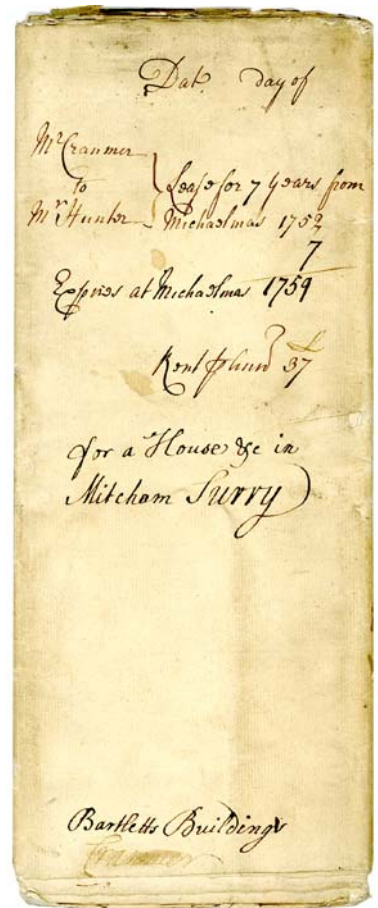 Dat. day of
Mr. Cranmer
to
Mr. Hunter
Lease for 7 Years from
Michaelmas 1752
7
Expires at Michaelmas 1759
Rent ann 37
for a House &c in
Mitcham Surry
Bartletts Buildings
Cranmer